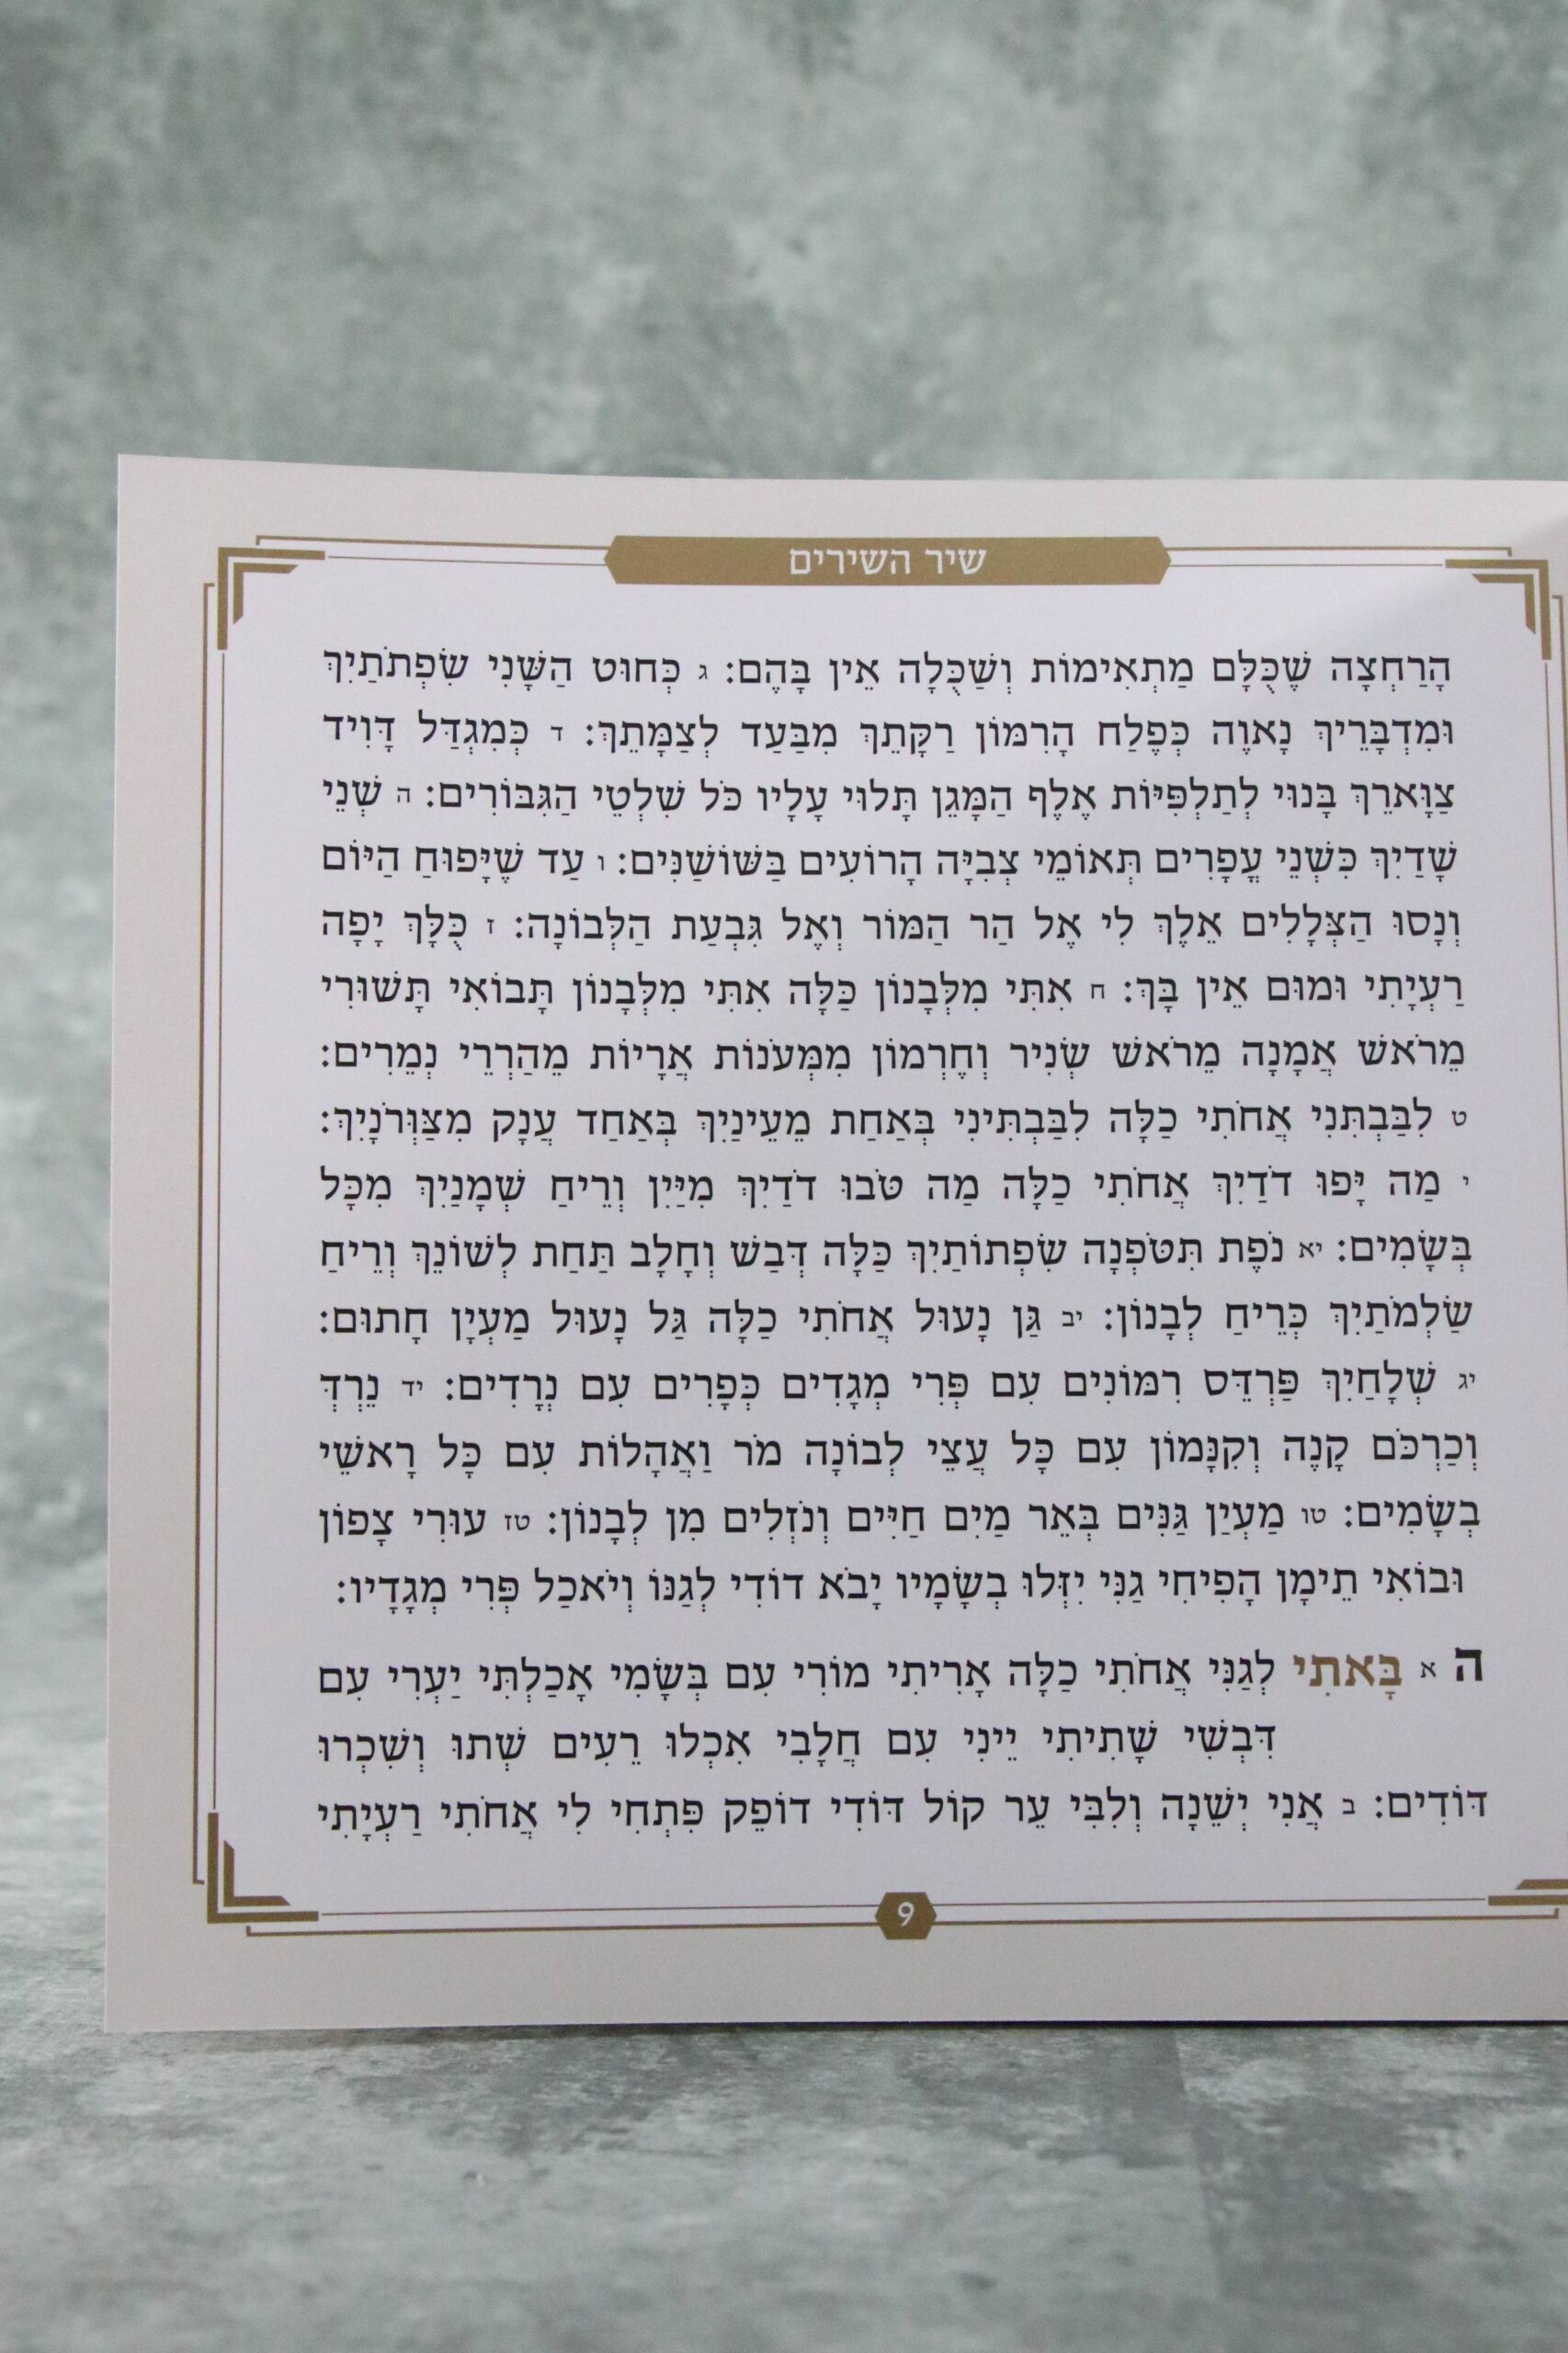 שיר השירים
הָרַחְצָה שֶׁכֻּלָּם מַתְאִימוֹת וְשַׁכֻּלָה אֵין בָּהֶם: ג כְּחוּט הַשָּׁנִי שִׂפְתֹתַיִךְ
וּמִדְבָּרֵיךְ נָאוֶה כְּפֶלַח הָרִמּוֹן רַקָּתֵךְ מִבַּעַד לְצַמָּתֵךְ: ד כְּמִגְדַּל דָּוִיד
צַוָּארֵךְ בָּנוּי לְתַלְפִּיּוֹת אֶלֶף הַמָּגֵן תָּלוּי עָלָיו כֹּל שִׁלְטֵי הַגִּבּוֹרִים: ה שְׁנֵי
שָׁדַיִךְ כִּשְׁנֵי עֳפָרִים תְּאוֹמֵי צְבִיָּה הָרוֹעִים בַּשּׁוֹשַׁנִּים: ו עַד שֶׁיָּפוּחַ הַיּוֹם
וְנָסוּ הַצְּלָלִים אֵלֶךְ לִי אֶל הַר הַמּוֹר וְאֶל גִּבְעַת הַלְּבוֹנָה: ז כֻּלָּךְ יָפָה
רַעְיָתִי וּמוּם אֵין בָּךְ: ח אִתִּי מִלְּבָנוֹן כַּלָּה אִתִּי מִלְּבָנוֹן תָּבוֹאִי תָּשׁוּרִי
מֵרֹאשׁ אֲמָנָה מֵרֹאשׁ שְׂנִיר וְחֶרְמוֹן מִמְּעֹנוֹת אֲרָיוֹת מֵהַרְרֵי נְמֵרִים:
ט לִבַּבְתִּנִי אֲחֹתִי כַלָּה לִבַּבְתִּינִי בְּאַחַת מֵעֵינַיִךְ בְּאַחַד עֲנָק מִצַּוְּרֹנָיִךְ:
י מַה יָּפוּ דֹדַיִךְ אֲחֹתִי כַלָּה מַה טֹּבוּ דֹדַיִךְ מִיַּיִן וְרֵיחַ שְׁמָנַיִךְ מִכָּל
בְּשָׂמִים: יא נֹפֶת תִּטֹּפְנָה שִׂפְתוֹתַיִךְ כַּלָּה דְּבַשׁ וְחָלָב תַּחַת לְשׁוֹנֵךְ וְרֵיחַ
שַׂלְמֹתַיִךְ כְּרֵיחַ לְבָנוֹן: יב גַּן נָעוּל אֲחֹתִי כַלָּה גַּל נָעוּל מַעְיָן חָתוּם:
יג שְׁלָחַיִךְ פַּרְדֵּס רִמּוֹנִים עִם פְּרִי מְגָדִים כְּפָרִים עִם נְרָדִים: יד נֵרְדְּ
וְכַרְכֹּם קָנֶה וְקִנָּמוֹן עִם כָּל עֲצֵי לְבוֹנָה מֹר וַאֲהָלוֹת עִם כָּל רָאשֵׁי
בְשָׂמִים: טו מַעְיַן גַּנִּים בְּאֵר מַיִם חַיִּים וְנֹזְלִים מִן לְבָנוֹן: טז עוּרִי צָפוֹן
וּבוֹאִי תֵימָן הָפִיחִי גַנִּי יִזְּלוּ בְשָׂמָיו יָבֹא דוֹדִי לְגַנּוֹ וְיֹאכַל פְּרִי מְגָדָיו:
ה א בָּאתִי לְגַנִּי אֲחֹתִי כַלָּה אָרִיתִי מוֹרִי עִם בְּשָׂמִי אָכַלְתִּי יַעְרִי עִם
דִּבְשִׁי שָׁתִיתִי יֵינִי עִם חֲלָבִי אִכְלוּ רֵעִים שְׁתוּ וְשִׁכְרוּ
דּוֹדִים: ב אֲנִי יְשֵׁנָה וְלִבִּי עֵר קוֹל דּוֹדִי דוֹפֵק פִּתְחִי לִי אֲחֹתִי רַעְיָתִי
9